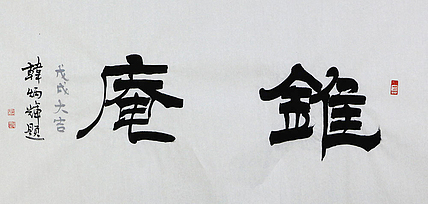 錐庵
戊戌大吉
韓炳輝題